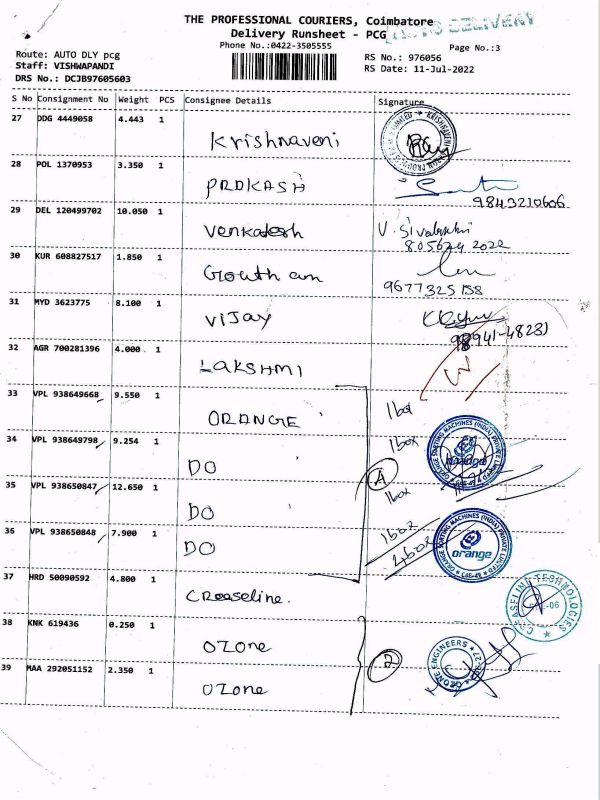 THE PROFESSIONAL COURIERS, Coimbatore
Delivery Runsheet - PCG
AUTO DELIVERY
Phone No.:0422-3505555
Page No.:3
Route: AUTO DLY pcg
RS No.: 976056
Staff: VISHWAPANDI
RS Date: 11-Jul-2022
DRS No.: DCJB97605603
S No Consignment No Weight PCS Consignee Details Signature
27 DDG 4449058 4.443 1
Krishnaveni
28 POL 1370953 3.350 1
PRAKASH
9843210606
29 DEL 120499702 10.050 1
Venkatesh V. Sivalakshmi
805674 2022
30 KUR 608827517 1.850 1
Goutham
9677325158
31 MYD 3623775 8.100 1
VIJAY
98941-48231
32 AGR 700281396 4.000 1
LAKSHMI
33 VPL 938649668 9.550 1
ORANGE 1 box
34 VPL 938649798 9.254 1
DO 1 box
35 VPL 938650847 12.650 1
DO 1 box
A
36 VPL 938650848 7.900 1
DO 1 box
4 box
ORANGE SORTING MACHINES (INDIA) PRIVATE LIMITED
orange
ORANGE SORTING MACHINES (INDIA) PRIVATE LIMITED
orange
CBE-49
37 HRD 50090592 4.800 1
Creaseline.
CREASELINE TECHNOLOGIES
38 KNK 619436 0.250 1
OZone
2
OZONE ENGINEERS
39 MAA 292051152 2.350 1
OZone